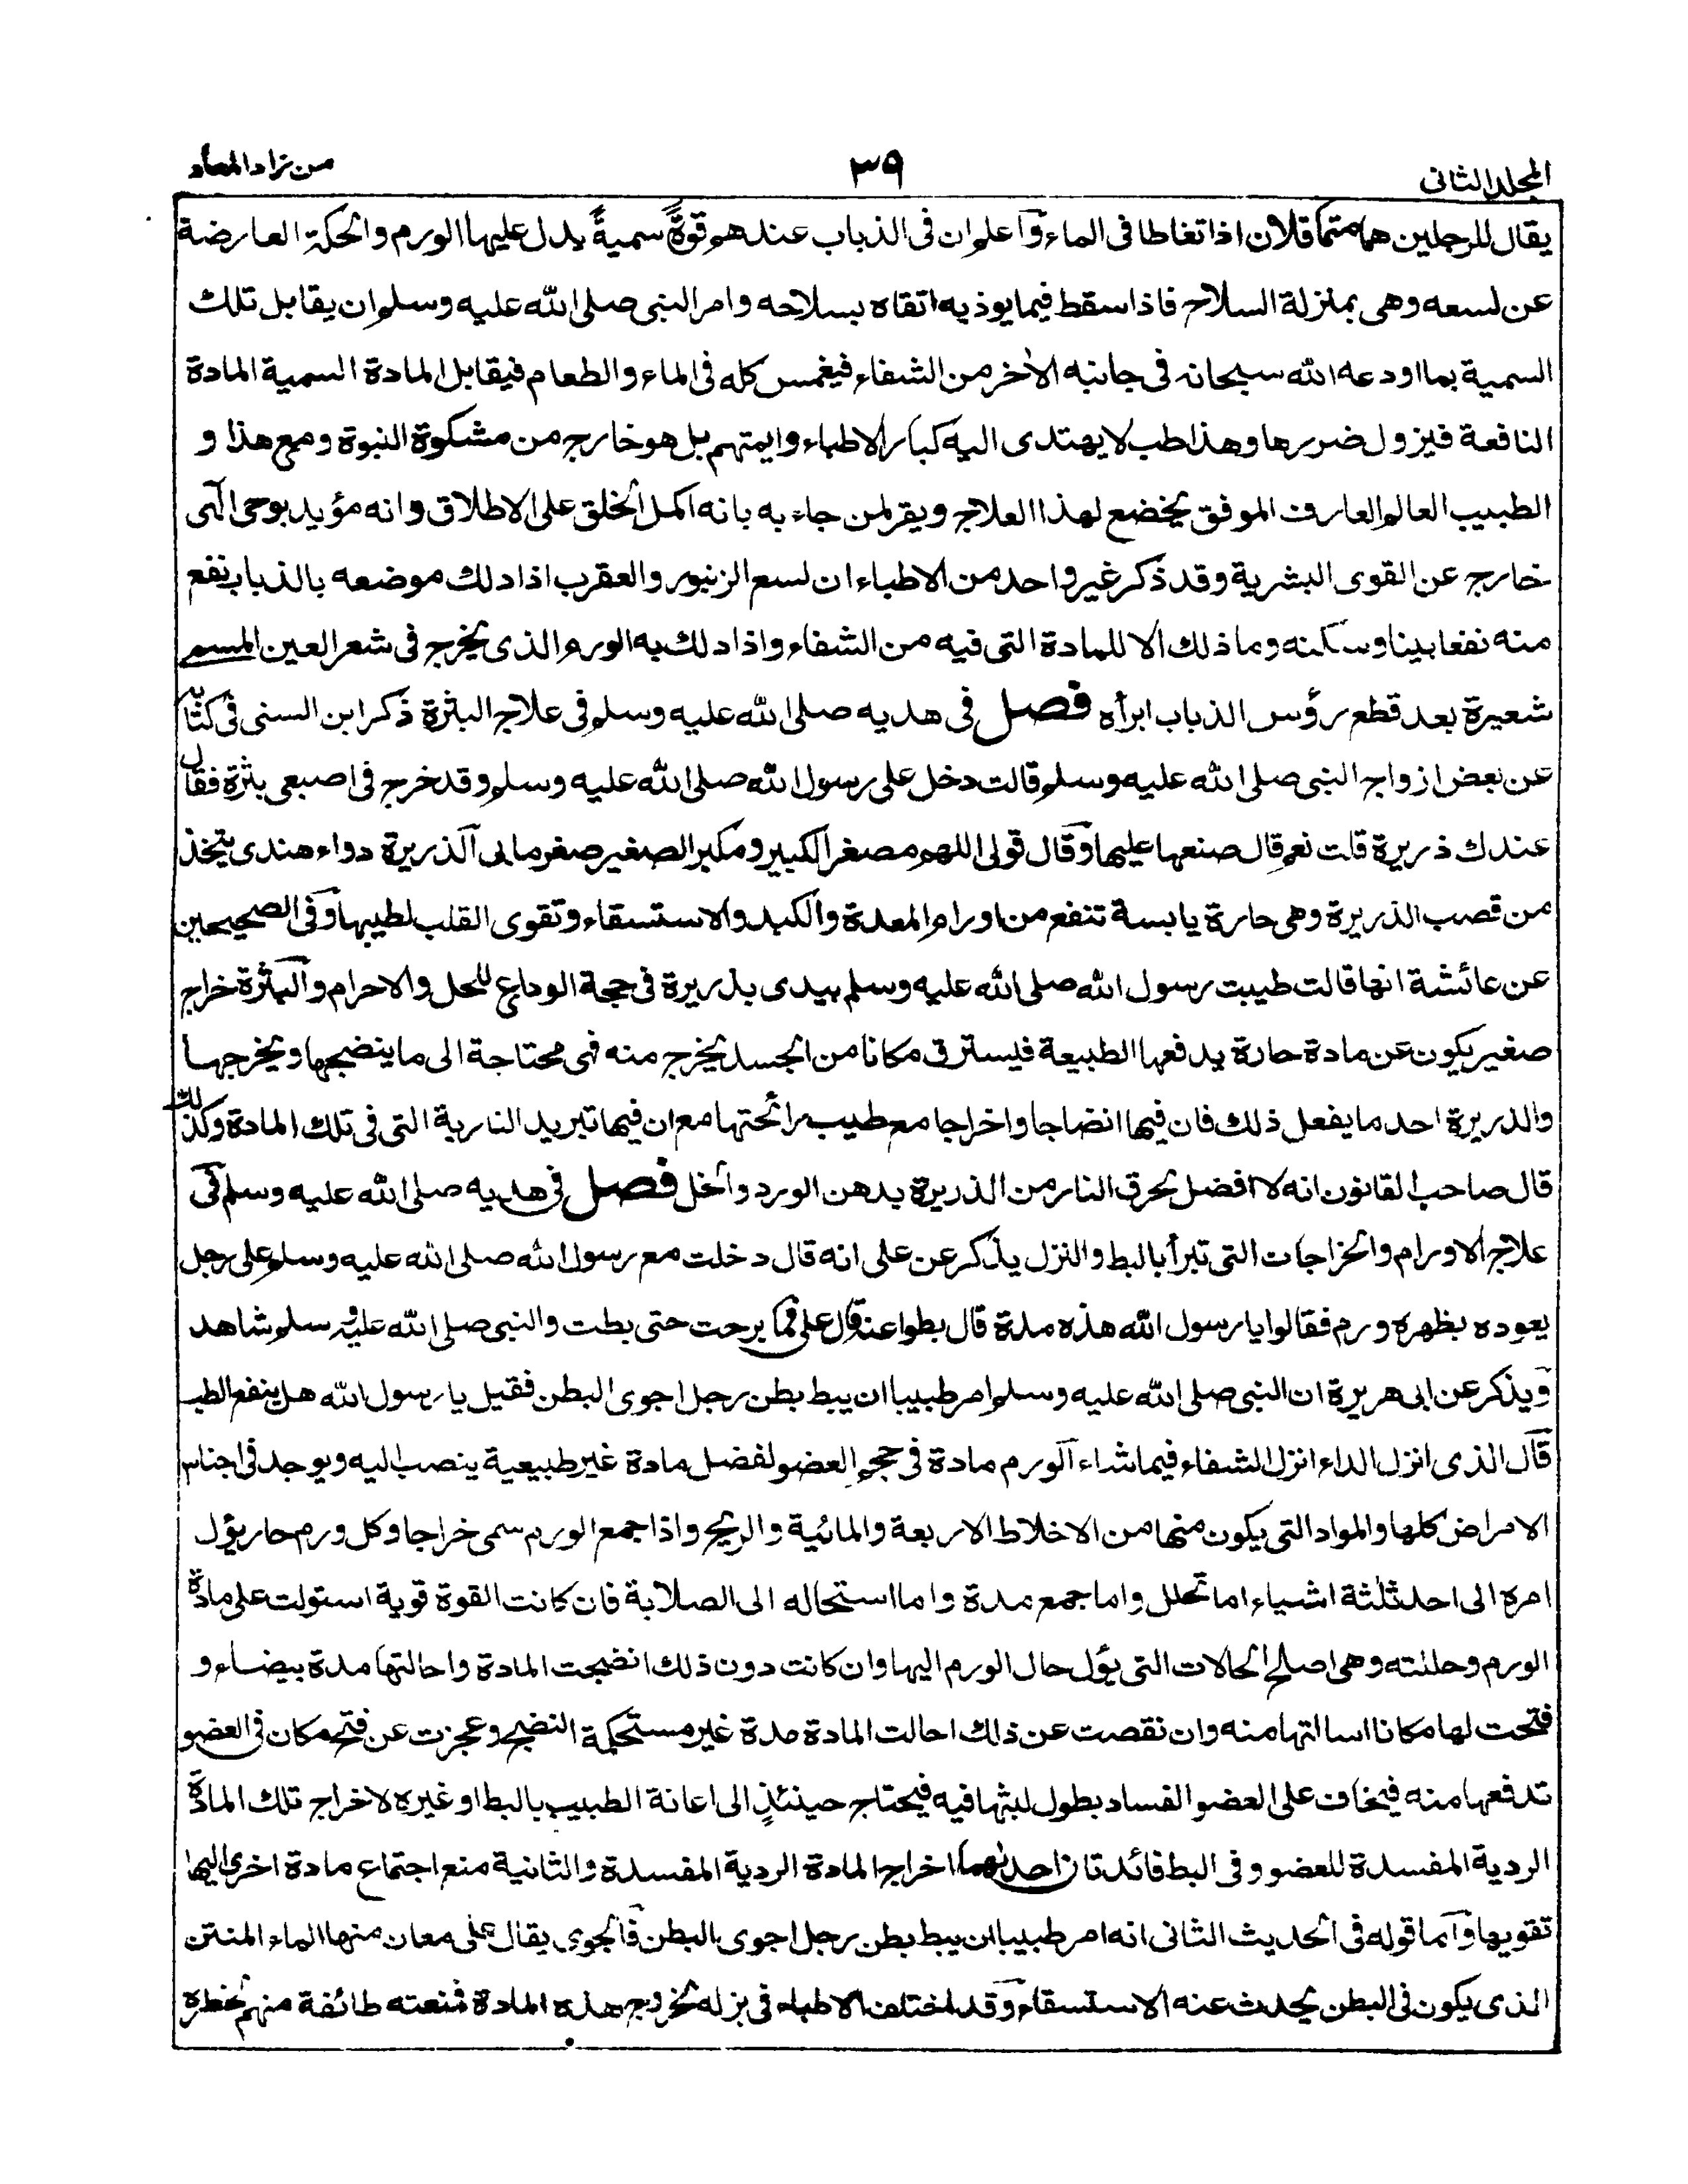 المجلد الثانى
٣٩
من زاد المعاد
يقال للرجلين هما متماقلان اذا تغاطا فى الماء وآعلم ان فى الذباب عندهم قوة سمية يدل عليها الورم والحكة العارضة
عن لسعه وهى بمنزلة السلاح فاذا سقط فيما يوذيه اتقاه بسلاحه وامر النبى صلى الله عليه وسلم ان يقابل تلك
السمية بما اودعه الله سبحانه فى جانبه الاٰخر من الشفاء فيغمس كله فى الماء والطعام فيقابل المادة السمية المادة
النافعة فيزول ضررها وهذا طب لا يهتدى اليه كبار الاطباء وايمتهم بل هو خارج من مشكوة النبوة ومع هذا و
الطبيب العالم العارف الموفق يخضع لهذا العلاج ويقر لمن جاء به بانه اكمل الخلق على الاطلاق وانه مؤيد بوحى الٓهى
خارج عن القوى البشرية وقد ذكر غير واحد من الاطباء ان لسع الزنبور والعقرب اذا دلك موضعه بالذباب نفع
منه نفعا بينا وسكنه وما ذلك الا للمادة التى فيه من الشفاء واذا دلك به الورم الذى يخرج فى شعر العين المسمى
شعيرة بعد قطع رؤس الذباب ابرأه فصل فى هديه صلى الله عليه وسلم فى علاج البثرة ذكر ابن السنى فى كتابه
عن بعض ازواج النبى صلى الله عليه وسلم قالت دخل على رسول الله صلى الله عليه وسلم وقد خرج فى اصبعى بثرة فقال
عندك ذريرة قلت نعم قال صنعها عليها وقال قولى اللهم مصغر الكبير ومكبر الصغير صغر ما بى آلذريرة دواء هندى يتخذ
من قصب الذريرة وهى حارة يابسة تنفع من اورام المعدة والكبد والاستسقاء وتقوى القلب لطيبها وفى الصحيحين
عن عائشة انها قالت طيبت رسول الله صلى الله عليه وسلم بيدى بذريرة فى حجة الوداع للحل والاحرام وآلبثرة خراج
صغير يكون عن مادة حارة يدفعها الطبيعة فيسترق مكانا من الجسد يخرج منه فهى محتاجة الى ما ينضجها ويخرجها
والذريرة احد ما يفعل ذلك فان فيها انضاجا واخراجا مع طيب رائحتها مع ان فيها تبريد النارية التى فى تلك المادة وكذلك
قال صاحب القانون انه لا افضل بحرق النار من الذريرة بدهن الورد والخل فصل فى هديه صلى الله عليه وسلم فى
علاج الاورام والخراجات التى تبرأ بالبط والنزل يذكر عن على انه قال دخلت مع رسول الله صلى الله عليه وسلم على رجل
يعوده بظهره ورم فقالوا يا رسول الله هذه مدة قال بطوا عنه قال على فما برحت حتى بطت والنبى صلى الله عليه وسلم شاهد
ويذكر عن ابى هريرة ان النبى صلى الله عليه وسلم امر طبيبا ان يبط بطن رجل اجوى البطن فقيل يا رسول الله هل ينفع الطب
قال الذى انزل الداء انزل الشفاء فيما شاء آلورم مادة فى حجم العضو لفضل مادة غير طبيعية ينصب اليه ويوجد فى اجناس
الامراض كلها والمواد التى يكون منها من الاخلاط الاربعة والمائية والريح واذا جمع الورم سمى خراجا وكل ورم حار يؤل
امره الى احد ثلثة اشياء اما تحلل واما جمع مدة واما استحاله الى الصلابة فان كانت القوة قوية استولت على مادة
الورم وحللته وهى اصلح الحالات التى يؤل حال الورم اليها وان كانت دون ذلك انضجت المادة واحالتها مدة بيضاء و
فتحت لها مكانا اسالتها منه وان نقصت عن ذلك احالت المادة مدة غير مستحكمة النضج وعجزت عن فتح مكان فى العضو
تدفعها منه فيخاف على العضو الفساد بطول لبثها فيه فيحتاج حينئذٍ الى اعانة الطبيب بالبط او غيره لاخراج تلك المادة
الردية المفسدة للعضو وفى البط فائدتان احدٰهما اخراج المادة الردية المفسدة والثانية منع اجتماع مادة اخرى اليها
تقويها وآما قوله فى الحديث الثانى انه امر طبيبا ان يبط بطن رجل اجوى البطن فآلجوى يقال على معان منها الماء المنتن
الذى يكون فى البطن يحدث عنه الاستسقاء وقد اختلف الاطباء فى بزله لخروج هذه المادة فمنعته طائفة منهم لخطره